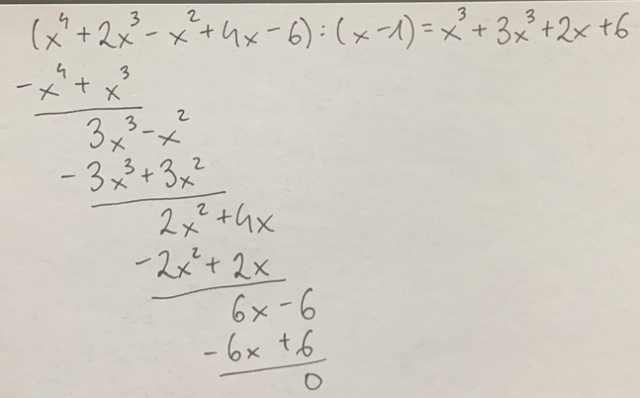 (x⁴ + 2x³ - x² + 4x - 6) : (x - 1) = x³ + 3x³ + 2x + 6
- x⁴ + x³
3x³ - x²
- 3x³ + 3x²
2x² + 4x
- 2x² + 2x
6x - 6
- 6x + 6
0